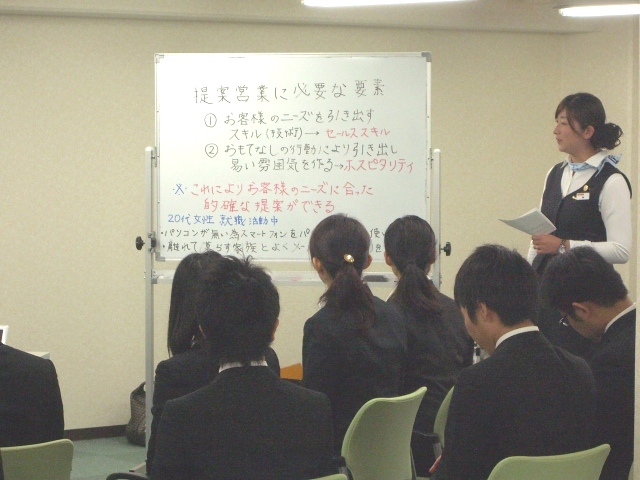 提案営業に必要な要素
① お客様のニーズを引き出す
スキル(技術)→ セールススキル
② おもてなしの行動により引き出し
易い雰囲気を作る→ホスピタリティ
※ これによりお客様のニーズに合った
的確な提案ができる
20代女性 就職活動中
・パソコンが無い為スマートフォンをパ 使い
・離れて暮らす家族とよくメー